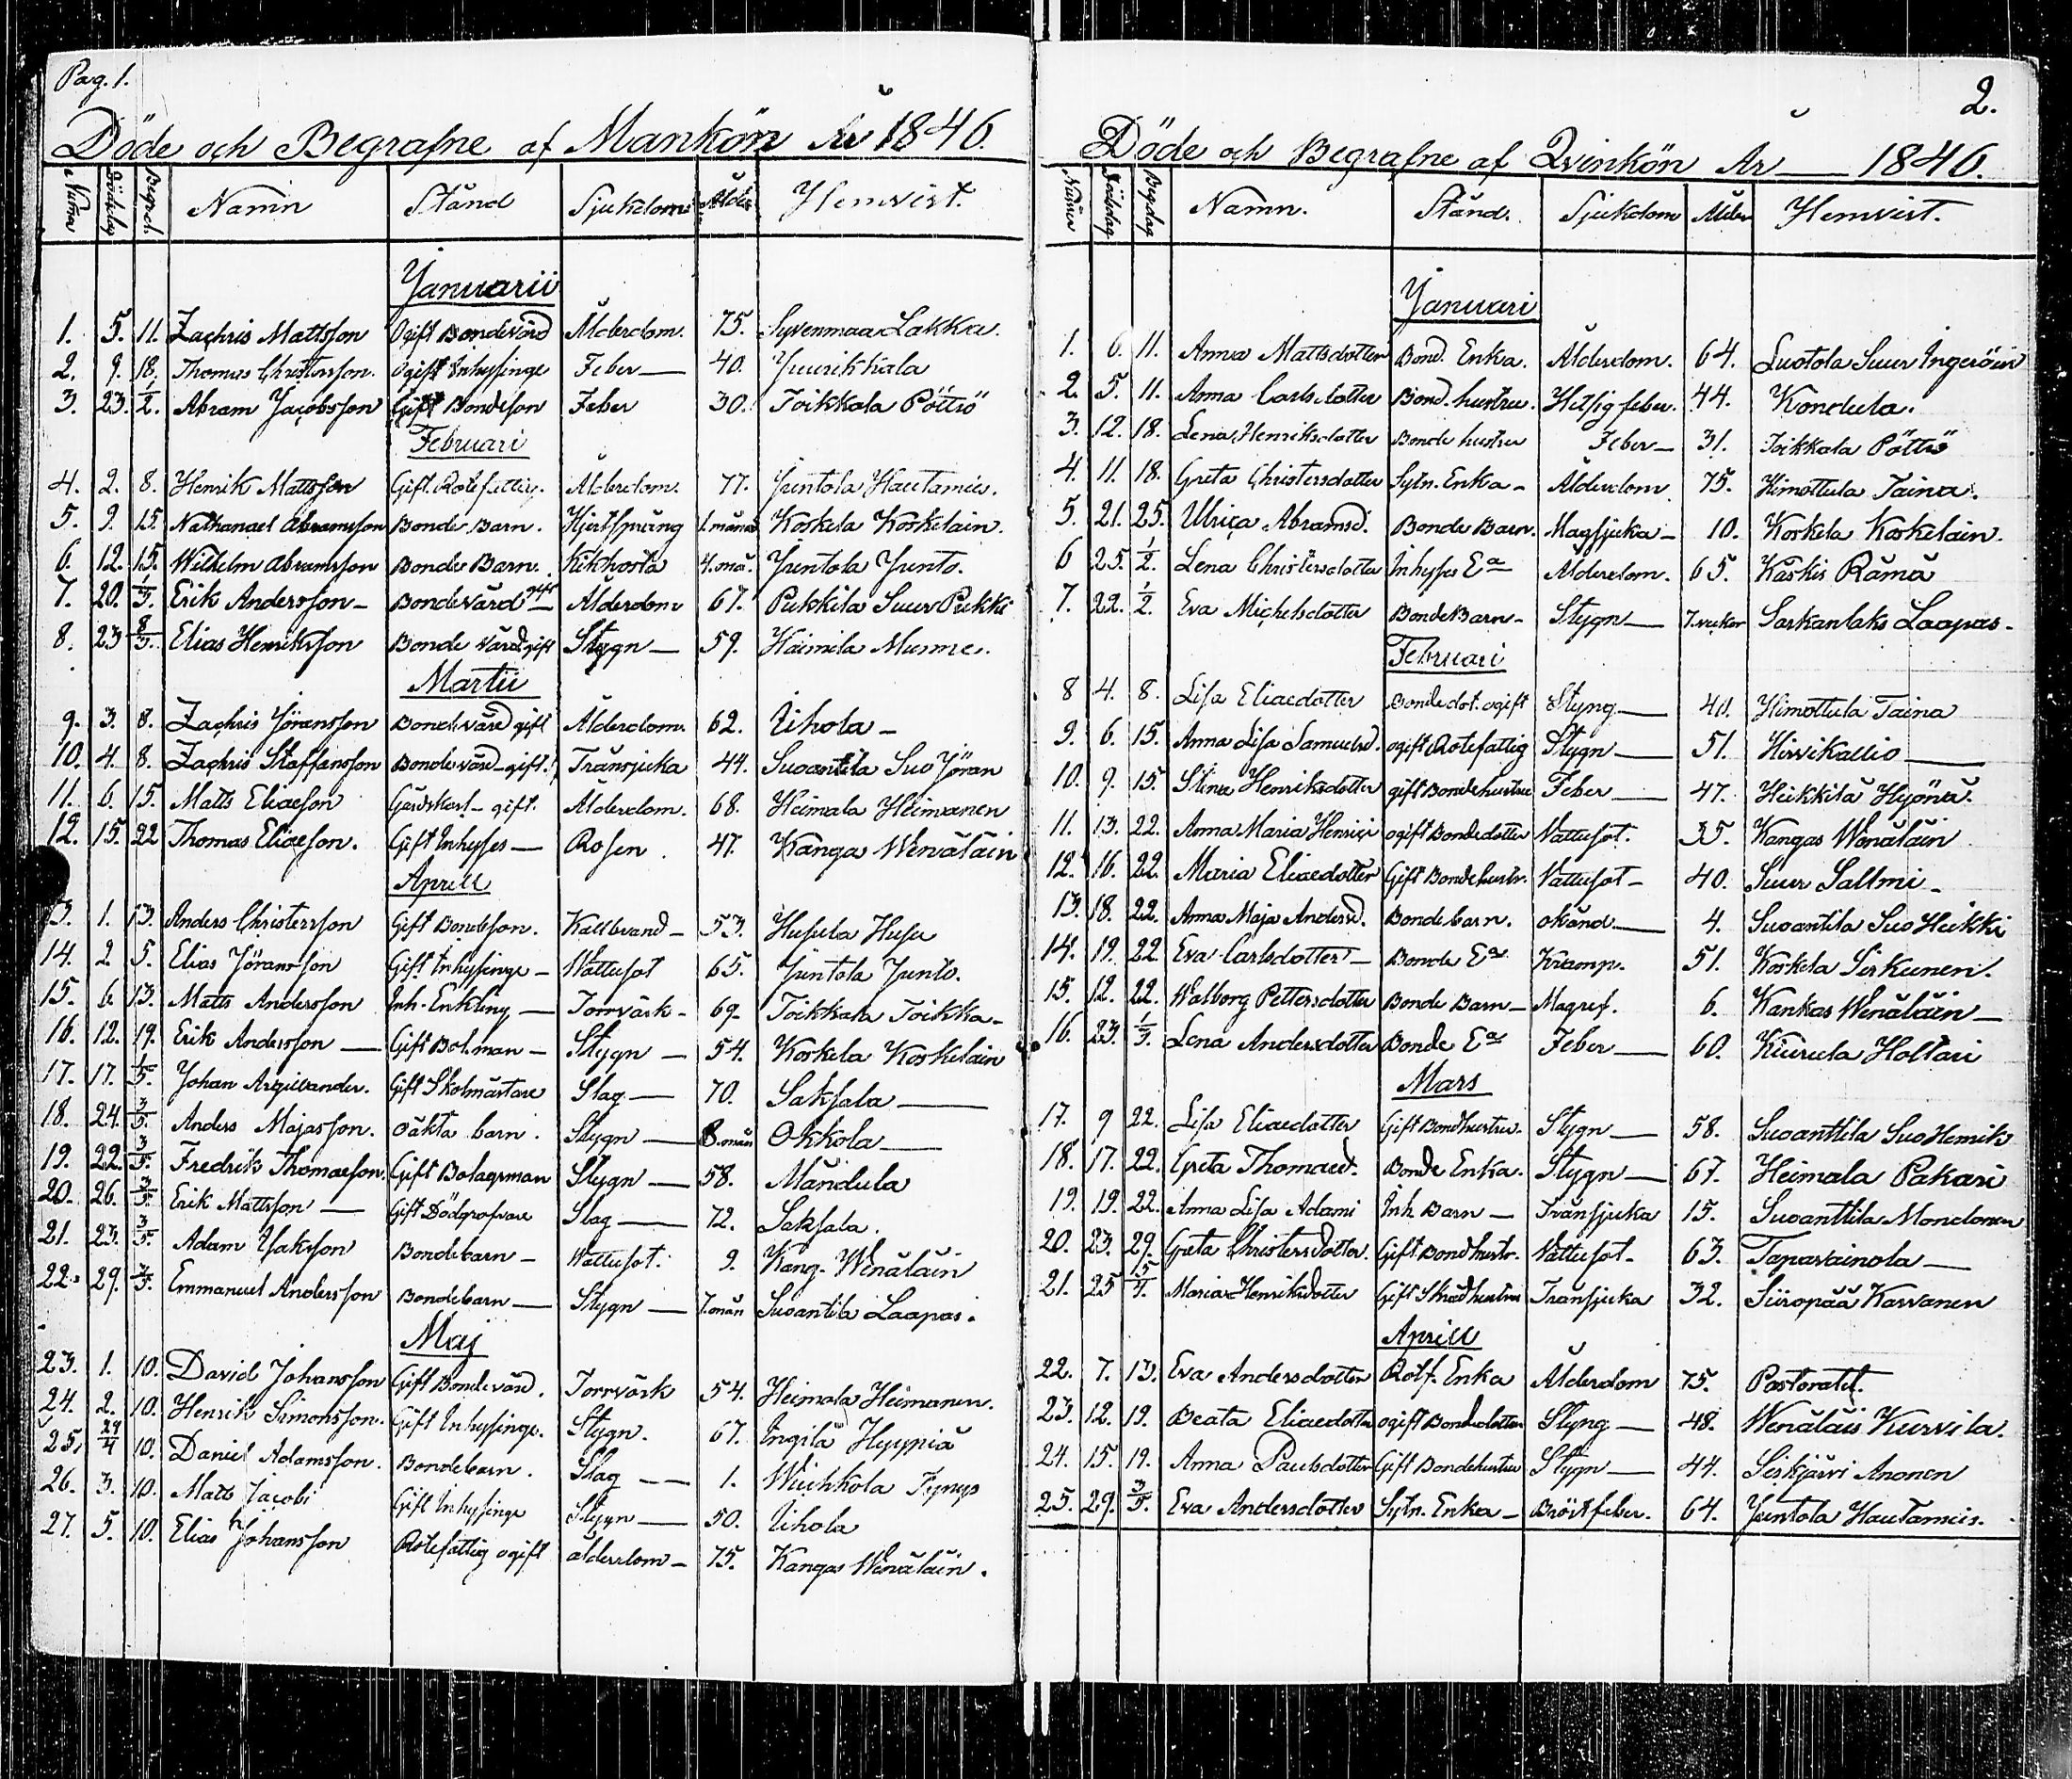 Pag. 1.
Döde och Begrafne af Mankön År 1846.
Numer Dödsdag Begrd. Namn Stånd Sjukdom Ålder Hemvist.
Januarii
1. 5. 11. Zachris Mattsson Ogift Bondevärd Ålderdom. 75. Syvenmaa Lakka.
2. 9. 18. Thomas Christersson. Ogift Inhysinge Feber — 40. Juurikkala
3. 23. 1/2. Abram Jacobsson Gift Bondeson Feber 30. Toikkala Pöttö
Februari
4. 2. 8. Henrik Mattsson Gift. Rotefattig. Ålderdom. 77. Juntola Hautamies.
5. 9. 15. Nathanael Abramsson Bonde Barn. Hjertsprång 1. månad Koskela Koskelain.
6. 12. 15. Wilhelm Abramsson Bonde Barn. Kikhosta 4. mån. Juntola Junto.
7. 20. 1/3. Erik Andersson — Bondevärd gift Ålderdom 67. Pukkila Suur Pukki
8. 23 8/3. Elias Henriksson Bonde värd gift Stygn — 59. Haimila Mumme.
Martii
9. 3. 8. Zachris Jöransson Bondevärd gift Ålderdom. 62. Uhola —
10. 4. 8. Zachris Staffansson Bondevärd gift. Trånsjuka 44. Suoantila Suo Jöran
11. 6. 15. Matts Eliaeson Gårdskarl — gift. Ålderdom. 68. Heimala Heimanen
12. 15. 22 Thomas Eliaeson. Gift Inhyses — Rosen. 47. Kanga Wenäläin
Aprill
13. 1. 13. Anders Christersson Gift Bondeson. Kallbrand — 53. Husula Husu
14. 2 5. Elias Jöransson Gift Inhysinge — Wattusot 65. Juntola Junto.
15. 6. 13. Matts Andersson Inh. Enkling — Torrvärk — 69. Toikkala Toikka —
16. 12. 19. Erik Andersson — Gift Bol.man — Stygn — 54. Koskela Koskelain
17. 17. 1/5. Johan Argillander. Gift Skolmästare Slag — 70. Saksala —
18. 24. 3/5. Anders Majasson. oäkta barn. Stygn — 8. mån Okkola —
19. 22. 3/5. Fredrik Thomaeson. Gift Bolagsman Stygn — 58. Mändula
20. 26. 3/5. Erik Mattsson — Gift Dödgrafvare Slag — 72. Saksala.
21. 23. 3/5. Adam Isaksson Bondebarn — Wattusot. 9. Kang. Wenäläin
22. 29. 3/5. Emmanuel Andersson Bondebarn — Stygn — 7. mån Suoantila Laapas.
Maj
23. 1. 10. David Johansson Gift Bondevärd. Torrvärk 54. Heimala Heimanen.
24. 2. 10. Henrik Simonsson. Gift Inhysinge. Stygn. 67. Ingilä Hyypiä
25. 29/4 10. Daniel Adamsson. Bondebarn. Slag — 1. Wuchkola Tynys
26. 3. 10. Matts Jacobi Gift Inhysinge Stygn — 50. Uhola
27. 5. 10. Elias Johansson Rotefattig ogift ålderdom — 75. Kangas Wenäläin.
2.
Döde och Begrafne af Qvinkön År — 1846.
Numer Dödsdag Begrdag Namn. Stånd. Sjukdom Ålder Hemvist.
Januari
1. 6. 11. Anna Mattsdotter Bond. Enka. Ålderdom. 64. Luotola Suur Ingeröin
2. 5. 11. Anna Carlsdotter Bond. hustru. Hetsig feber. 44. Kondula.
3. 12. 18. Lena Henriksdotter Bonde hustru Feber — 31. Toikkala Pöttö
4. 11. 18. Greta Christersdotter Sytn. Enka — Ålderdom 75. Himottula Taina.
5. 21. 25. Ulrica Abramsd. Bonde Barn. Magsjuka — 10. Koskela Koskelain.
6 25. 1/2. Lena Christersdotter Inhyses Ea Ålderdom. 65. Kaskis Rämä
7. 22. 1/2. Eva Michelsdotter Bonde Barn — Stygn — 7. veckor Sarkanlaks Laapas —
Februari
8 4. 8. Lisa Eliaedotter Bondedot. ogift Styng — 40. Himottula Taina
9. 6. 15. Anna Lisa Samuelsd. ogift Rotefattig Stygn — 51. Hirvikallio —
10. 9. 15. Stina Henriksdotter gift Bondehustru Feber — 47. Heikkilä Hyönä.
11. 13. 22. Anna Maria Henrici ogift Bondedotter Vattusot. 35. Kangas Wenäläin
12. 16. 22. Maria Eliaedotter Gift Bondehustr. Vattusot — 40. Suur Sallmi —
13. 18. 22. Anna Maja Andersd. Bondebarn. okänd — 4. Suoantila Suo Heikki
14. 19. 22 Eva Carlsdotter — Bonde Ea Kramp. 51. Koskela Sirkunen.
15. 12. 22. Walborg Pettersdotter Bonde Barn — Magref. 6. Kankas Wenäläin —
16. 23. 1/3. Lena Andersdotter Bonde Ea Feber — 60. Kiurula Holtari
Mars
17. 9 22. Lisa Eliaedotter Gift Bondhustru. Stygn — 58. Suoanttila Suo Henrik
18. 17. 22. Greta Thomaed. Bonde Enka. Stygn — 67. Heimala Pakari
19. 19. 22. Anna Lisa Adami Inh. Barn — Trånsjuka 15. Suoanttila Mondonen
20. 23. 29. Greta Christersdotter. Gift Bondhustr. Vattusot — 63. Tapavainola —
21. 25 5/4. Maria Henriksdotter Gift Skrädhustru Transjuka 32. Siiropää Karvanen
Aprill
22. 7. 13. Eva Andersdotter Rotf. Enka Ålderdom 75. Pastoratet.
23. 12. 19. Beata Eliaedotter ogift Bondedotter Styng — 48. Wenäläis Kurvila.
24. 15. 19. Anna Paulsdotter Gift Bondehustru Stygn — 44. Sirkjärvi Anonen
25. 29. 3/5. Eva Andersdotter Sytn. Enka — Bröstfeber. 64. Juntola Hautamies.